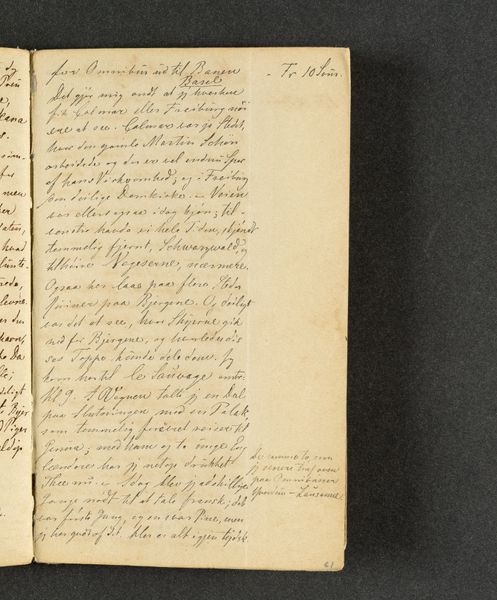 for Omnibus ud til Banen
- Fr 10 Sous.
Basel
Det gjør mig ondt at jeg hverken
fik Colmar eller Freiburg nær-
at see. Colmar var jo Stedet,
hvor den gamle Martin Schön
arbeidede og der er vel endnu Spor
af hans Virksomhed; og i Freiburg
den deilige Domkirke. - Veien
var ellers ogsaa i dag kjøn; til-
venstre havde vi hele Tiden, skjøndt
temmelig fjernt, Schwarzwald, og
tilhøire Vogeserne, nærmere.
Ogsaa her laae paa flere Steder
Ruiner paa Bjergene. Og deiligt
var det at see, hvor Skyerne gik
ned for Bjergene, og hvorledes dis-
ses Toppe kunde dele dem. Jeg
kom her til le Sauvage omtr.
Kl 9. I Vognen talte jeg en Deel
paa Slutningen med en Polak,
som temmelig forsikret reiser til
Genua; med ham og to unge Eng-
lændere har jeg netop drukket
Thee nu. - I dag blev jeg adskillige
Gange nødt til at tale fransk; det
var første Gang, og en svær Pine, men
jeg har godt af det. Her er alt igjen tydsk.
De samme to som
jeg senere traf oven
paa Omnibussen
Yverdun - Lausanne.
61